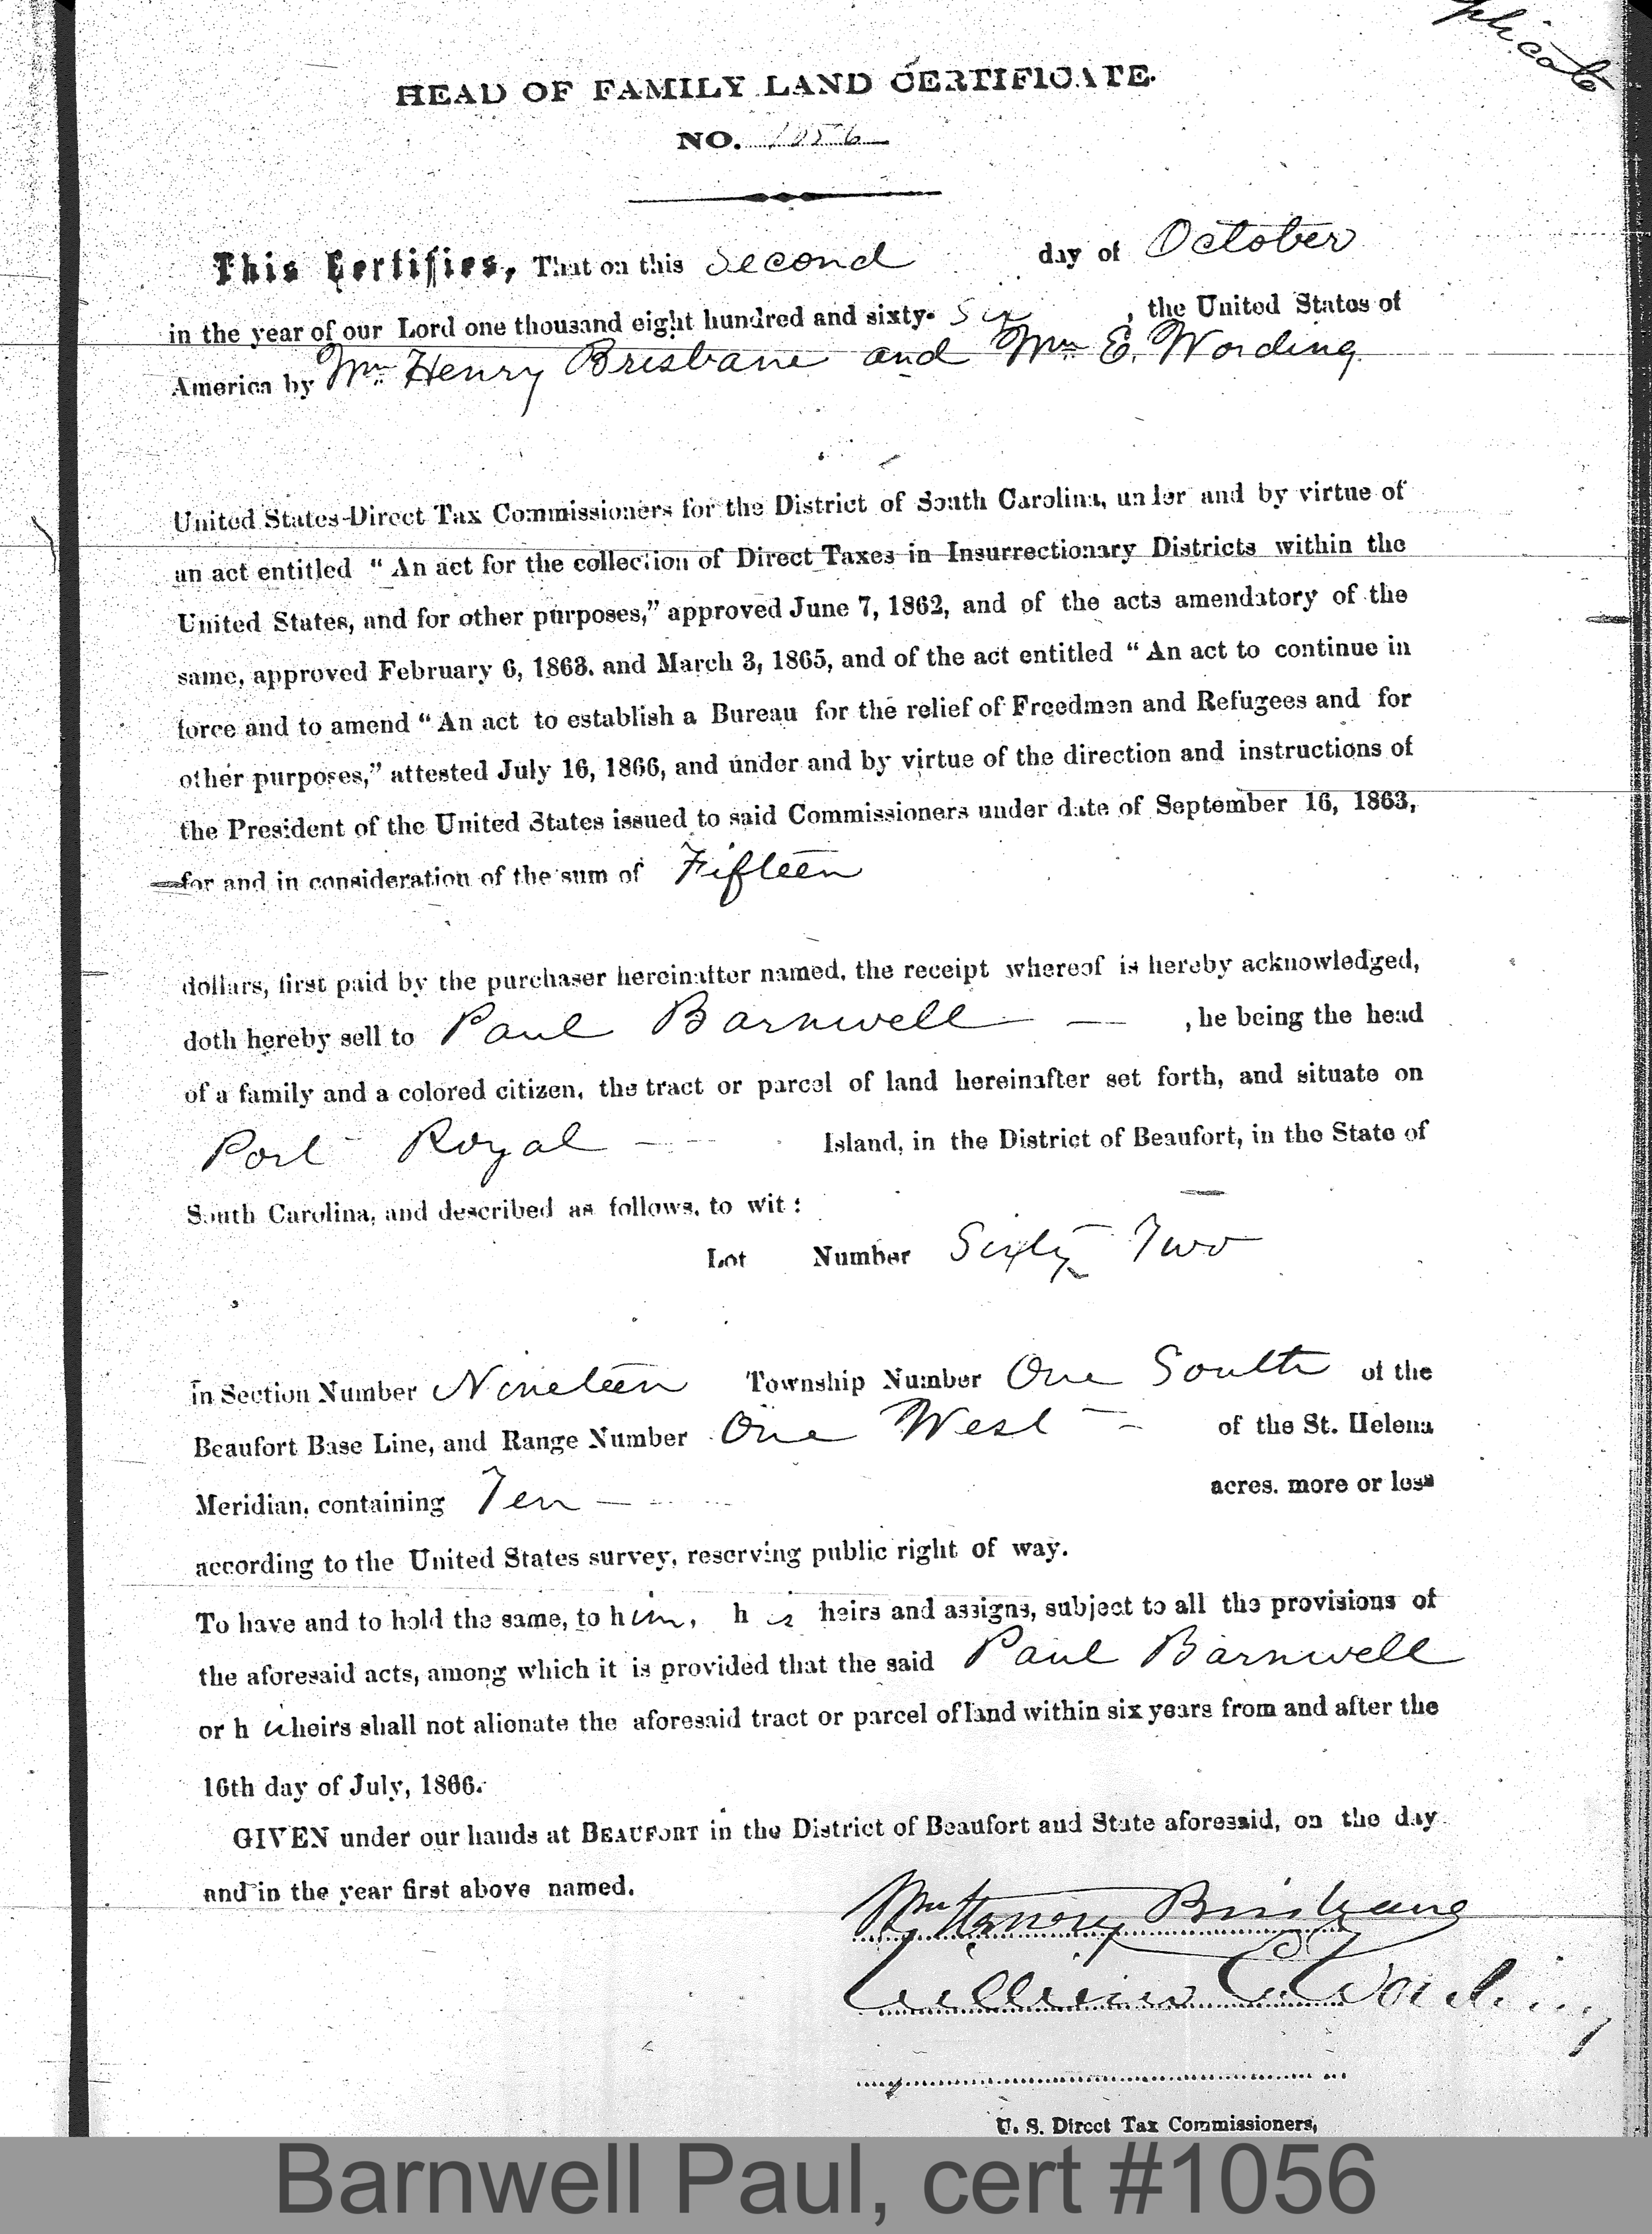 plicate
HEAD OF FAMILY LAND CERTIFICATE.
NO. 1056
This Certifies, That on this Second day of October
in the year of our Lord one thousand eight hundred and sixty- Six , the United States of
America by Wm Henry Brisbane and Wm E. Wording
United States Direct Tax Commissioners for the District of South Carolina, under and by virtue of
an act entitled “ An act for the collection of Direct Taxes in Insurrectionary Districts within the
United States, and for other purposes,” approved June 7, 1862, and of the acts amendatory of the
same, approved February 6, 1863. and March 3, 1865, and of the act entitled “ An act to continue in
force and to amend “ An act to establish a Bureau for the relief of Freedmen and Refugees and for
other purposes,” attested July 16, 1866, and under and by virtue of the direction and instructions of
the President of the United States issued to said Commissioners under date of September 16, 1863,
for and in consideration of the sum of Fifteen
dollars, first paid by the purchaser hereinafter named, the receipt whereof is hereby acknowledged,
doth hereby sell to Paul Barnwell — , he being the head
of a family and a colored citizen, the tract or parcel of land hereinafter set forth, and situate on
Port Royal — Island, in the District of Beaufort, in the State of
South Carolina, and described as follows, to wit :
Lot Number Sixty Two
in Section Number Nineteen Township Number One South of the
Beaufort Base Line, and Range Number One West — of the St. Helena
Meridian, containing Ten — acres. more or less
according to the United States survey, reserving public right of way.
To have and to hold the same, to him, his heirs and assigns, subject to all the provisions of
the aforesaid acts, among which it is provided that the said Paul Barnwell
or his heirs shall not alienate the aforesaid tract or parcel of land within six years from and after the
16th day of July, 1866.
GIVEN under our hands at BEAUFORT in the District of Beaufort and State aforesaid, on the day
and in the year first above named.
Wm Henry Brisbane
William E. Wording
U. S. Direct Tax Commissioners,
Barnwell Paul, cert #1056